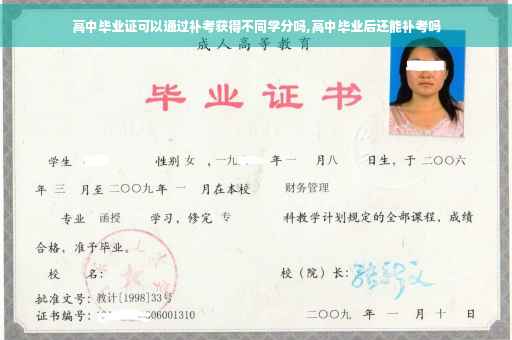 高中毕业证可以通过补考获得不同学分吗,高中毕业后还能补考吗
成人高等教育
毕业证书
学生 性别 女 ,一九 年 一 月八 日生，于 二〇〇六
年 三 月至 二〇〇九年 一 月在本校 财务管理
专业 函授 学习，修完 专 科教学计划规定的全部课程，成绩
合格，准予毕业。
校 名： 校（院）长：
批准文号：教计[1998]33号
证书编号： 06001310 二〇〇九 年 一 月 十 日